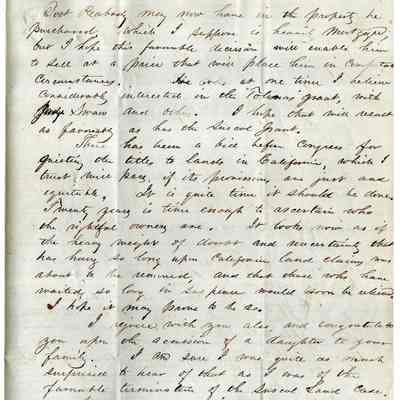 Doct Peabody may now have in the property he
purchased, which I suppose is heavily Mortgaged,
but I hope this favorable decision will enable him
to sell at a price that will place him in comfortable
Circumstances. He was at one time I believe
considerably interested in the Tolenas grant, with
Judge Swain and others. I hope that will result
as favorably as has the Suscol Grant.
There has been a bill before Congress for
quieting the titles to lands in California, which I
trust will pass, if its provisions are just and
equitable. It is quite time it should be done.
Twenty years is time enough to ascertain who
the rightful owners are. It looks now as if
the heavy weight of doubt and uncertainty that
has hung so long upon California land claims was
about to be removed, and that those who have
waited so long in suspense would soon be relieved.
I hope it may prove to be so.
I rejoice with you also, and congratulate
you upon the accession of a daughter to your
family. I am sure I was quite as much
surprised to hear of that as I was of the
favorable termination of the Suscol Land Case.